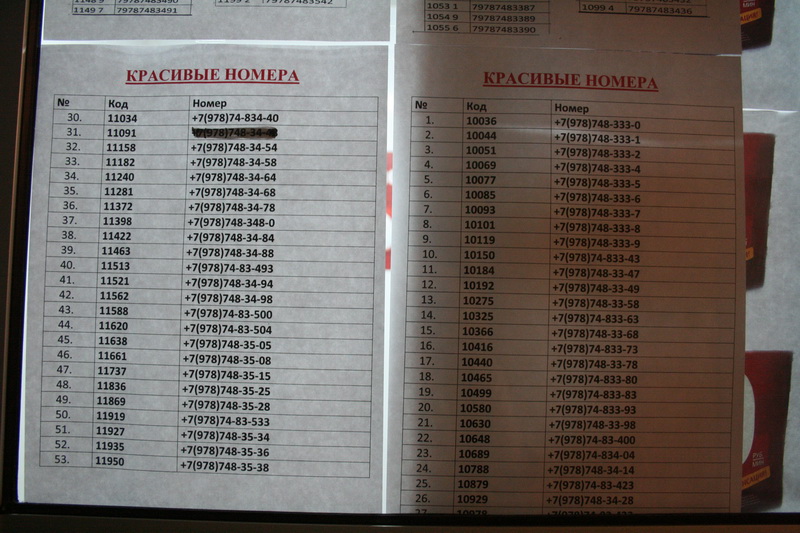 1149 7 79787483491
79787483542
1053 1 79787483387
1054 9 79787483389
1055 6 79787483390
1099 4 79787483436
КРАСИВЫЕ НОМЕРА
№ Код Номер
30. 11034 +7(978)74-834-40
31. 11091
32. 11158 +7(978)748-34-54
33. 11182 +7(978)748-34-58
34. 11240 +7(978)748-34-64
35. 11281 +7(978)748-34-68
36. 11372 +7(978)748-34-78
37. 11398 +7(978)748-348-0
38. 11422 +7(978)748-34-84
39. 11463 +7(978)748-34-88
40. 11513 +7(978)74-83-493
41. 11521 +7(978)748-34-94
42. 11562 +7(978)748-34-98
43. 11588 +7(978)74-83-500
44. 11620 +7(978)74-83-504
45. 11638 +7(978)748-35-05
46. 11661 +7(978)748-35-08
47. 11737 +7(978)748-35-15
48. 11836 +7(978)748-35-25
49. 11869 +7(978)748-35-28
50. 11919 +7(978)74-83-533
51. 11927 +7(978)748-35-34
52. 11935 +7(978)748-35-36
53. 11950 +7(978)748-35-38
КРАСИВЫЕ НОМЕРА
№ Код Номер
1. 10036 +7(978)748-333-0
2. 10044 +7(978)748-333-1
3. 10051 +7(978)748-333-2
4. 10069 +7(978)748-333-4
5. 10077 +7(978)748-333-5
6. 10085 +7(978)748-333-6
7. 10093 +7(978)748-333-7
8. 10101 +7(978)748-333-8
9. 10119 +7(978)748-333-9
10. 10150 +7(978)74-833-43
11. 10184 +7(978)748-33-47
12. 10192 +7(978)748-33-49
13. 10275 +7(978)748-33-58
14. 10325 +7(978)74-833-63
15. 10366 +7(978)748-33-68
16. 10416 +7(978)74-833-73
17. 10440 +7(978)748-33-78
18. 10465 +7(978)74-833-80
19. 10499 +7(978)74-833-83
20. 10580 +7(978)74-833-93
21. 10630 +7(978)748-33-98
22. 10648 +7(978)74-83-400
23. 10689 +7(978)74-834-04
24. 10788 +7(978)748-34-14
25. 10879 +7(978)74-83-423
26. 10929 +7(978)748-34-28